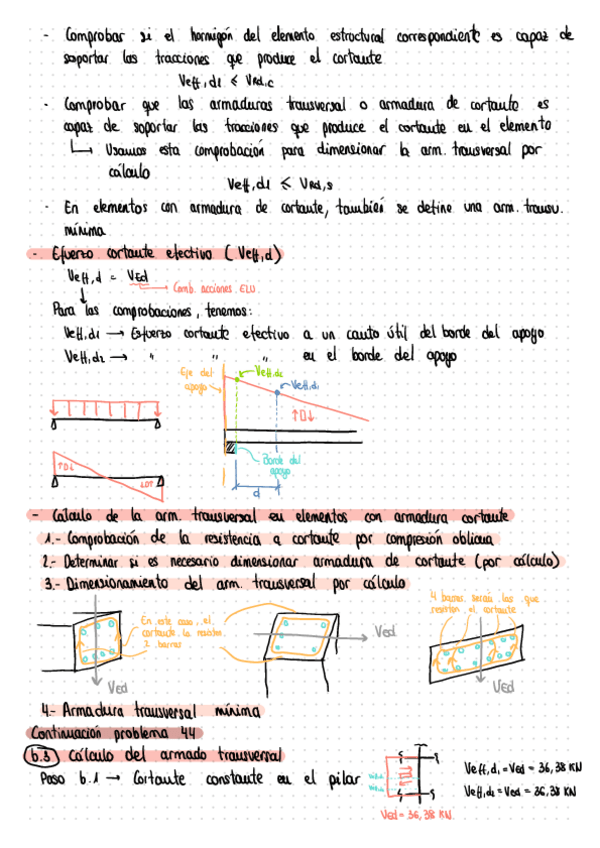 - Comprobar si el hormigón del elemento estructural correspondiente es capaz de
soportar las tracciones que produce el cortante
Veff,d1 ≤ VRd,c
- Comprobar que las armaduras transversal o armadura de cortante es
capaz de soportar las tracciones que produce el cortante en el elemento
↳ Usamos esta comprobación para dimensionar la arm. transversal por
cálculo
Veff,d1 ≤ VRd,s
- En elementos con armadura de cortante, también se define una arm. transv.
mínima
- Esfuerzo cortante efectivo (Veff,d)
Veff,d = VEd
→ Comb. acciones ELU
Para las comprobaciones, tenemos:
Veff,d1 → Esfuerzo cortante efectivo a un canto útil del borde del apoyo
Veff,d2 → " " " en el borde del apoyo
Eje del
apoyo
Veff,d2
Veff,d1
↑D↓
Borde del
apoyo
d
↑D↓
↓D↑
- Calculo de la arm. transversal en elementos con armadura cortante
1.- Comprobación de la resistencia a cortante por compresión oblicua
2.- Determinar si es necesario dimensionar armadura de cortante (por cálculo)
3.- Dimensionamiento del arm. transversal por cálculo
En este caso, el
cortante la resisten
2 barras
VEd
VEd
4 barras serán las que
resistan el cortante
VEd
4.- Armadura transversal mínima
Continuación problema 44
b.3) Cálculo del armado transversal
Paso b.1 → Cortante constante en el pilar
VEd = 36,38 KN
Veff,d1 = VEd = 36,38 KN
Veff,d2 = VEd = 36,38 KN